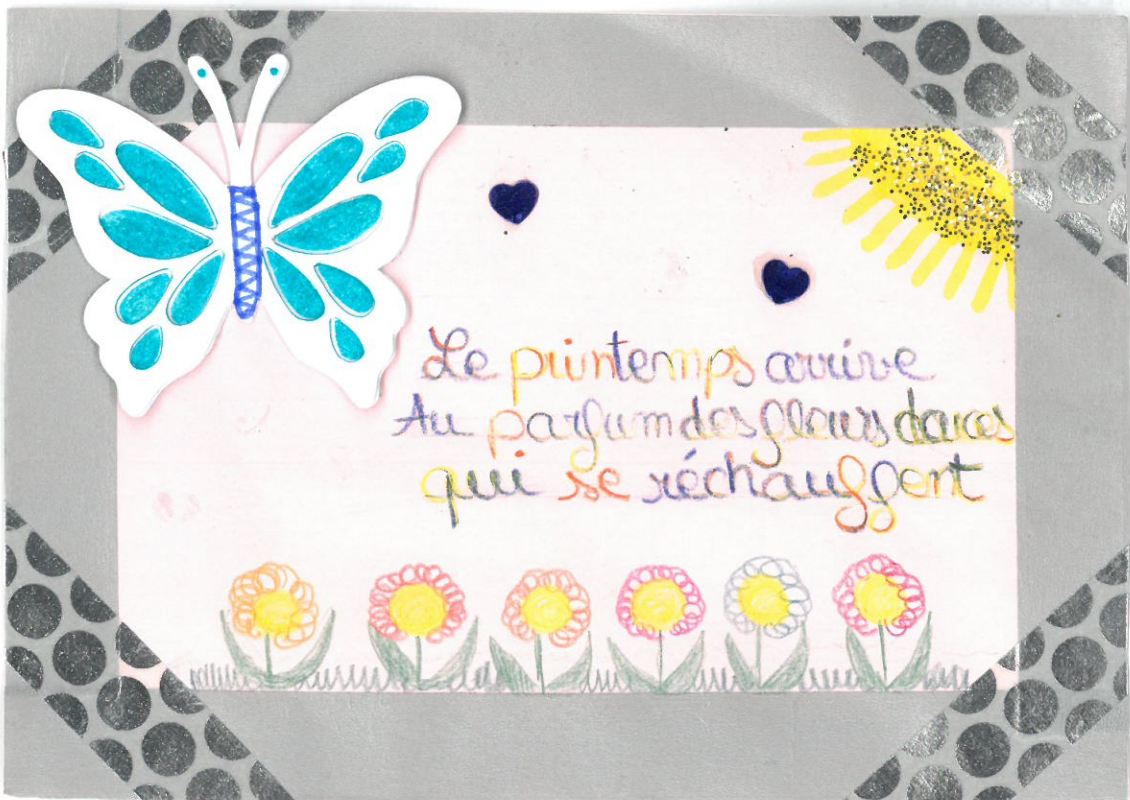 Le printemps arrive
Au parfum des fleurs douces
qui se réchauffent